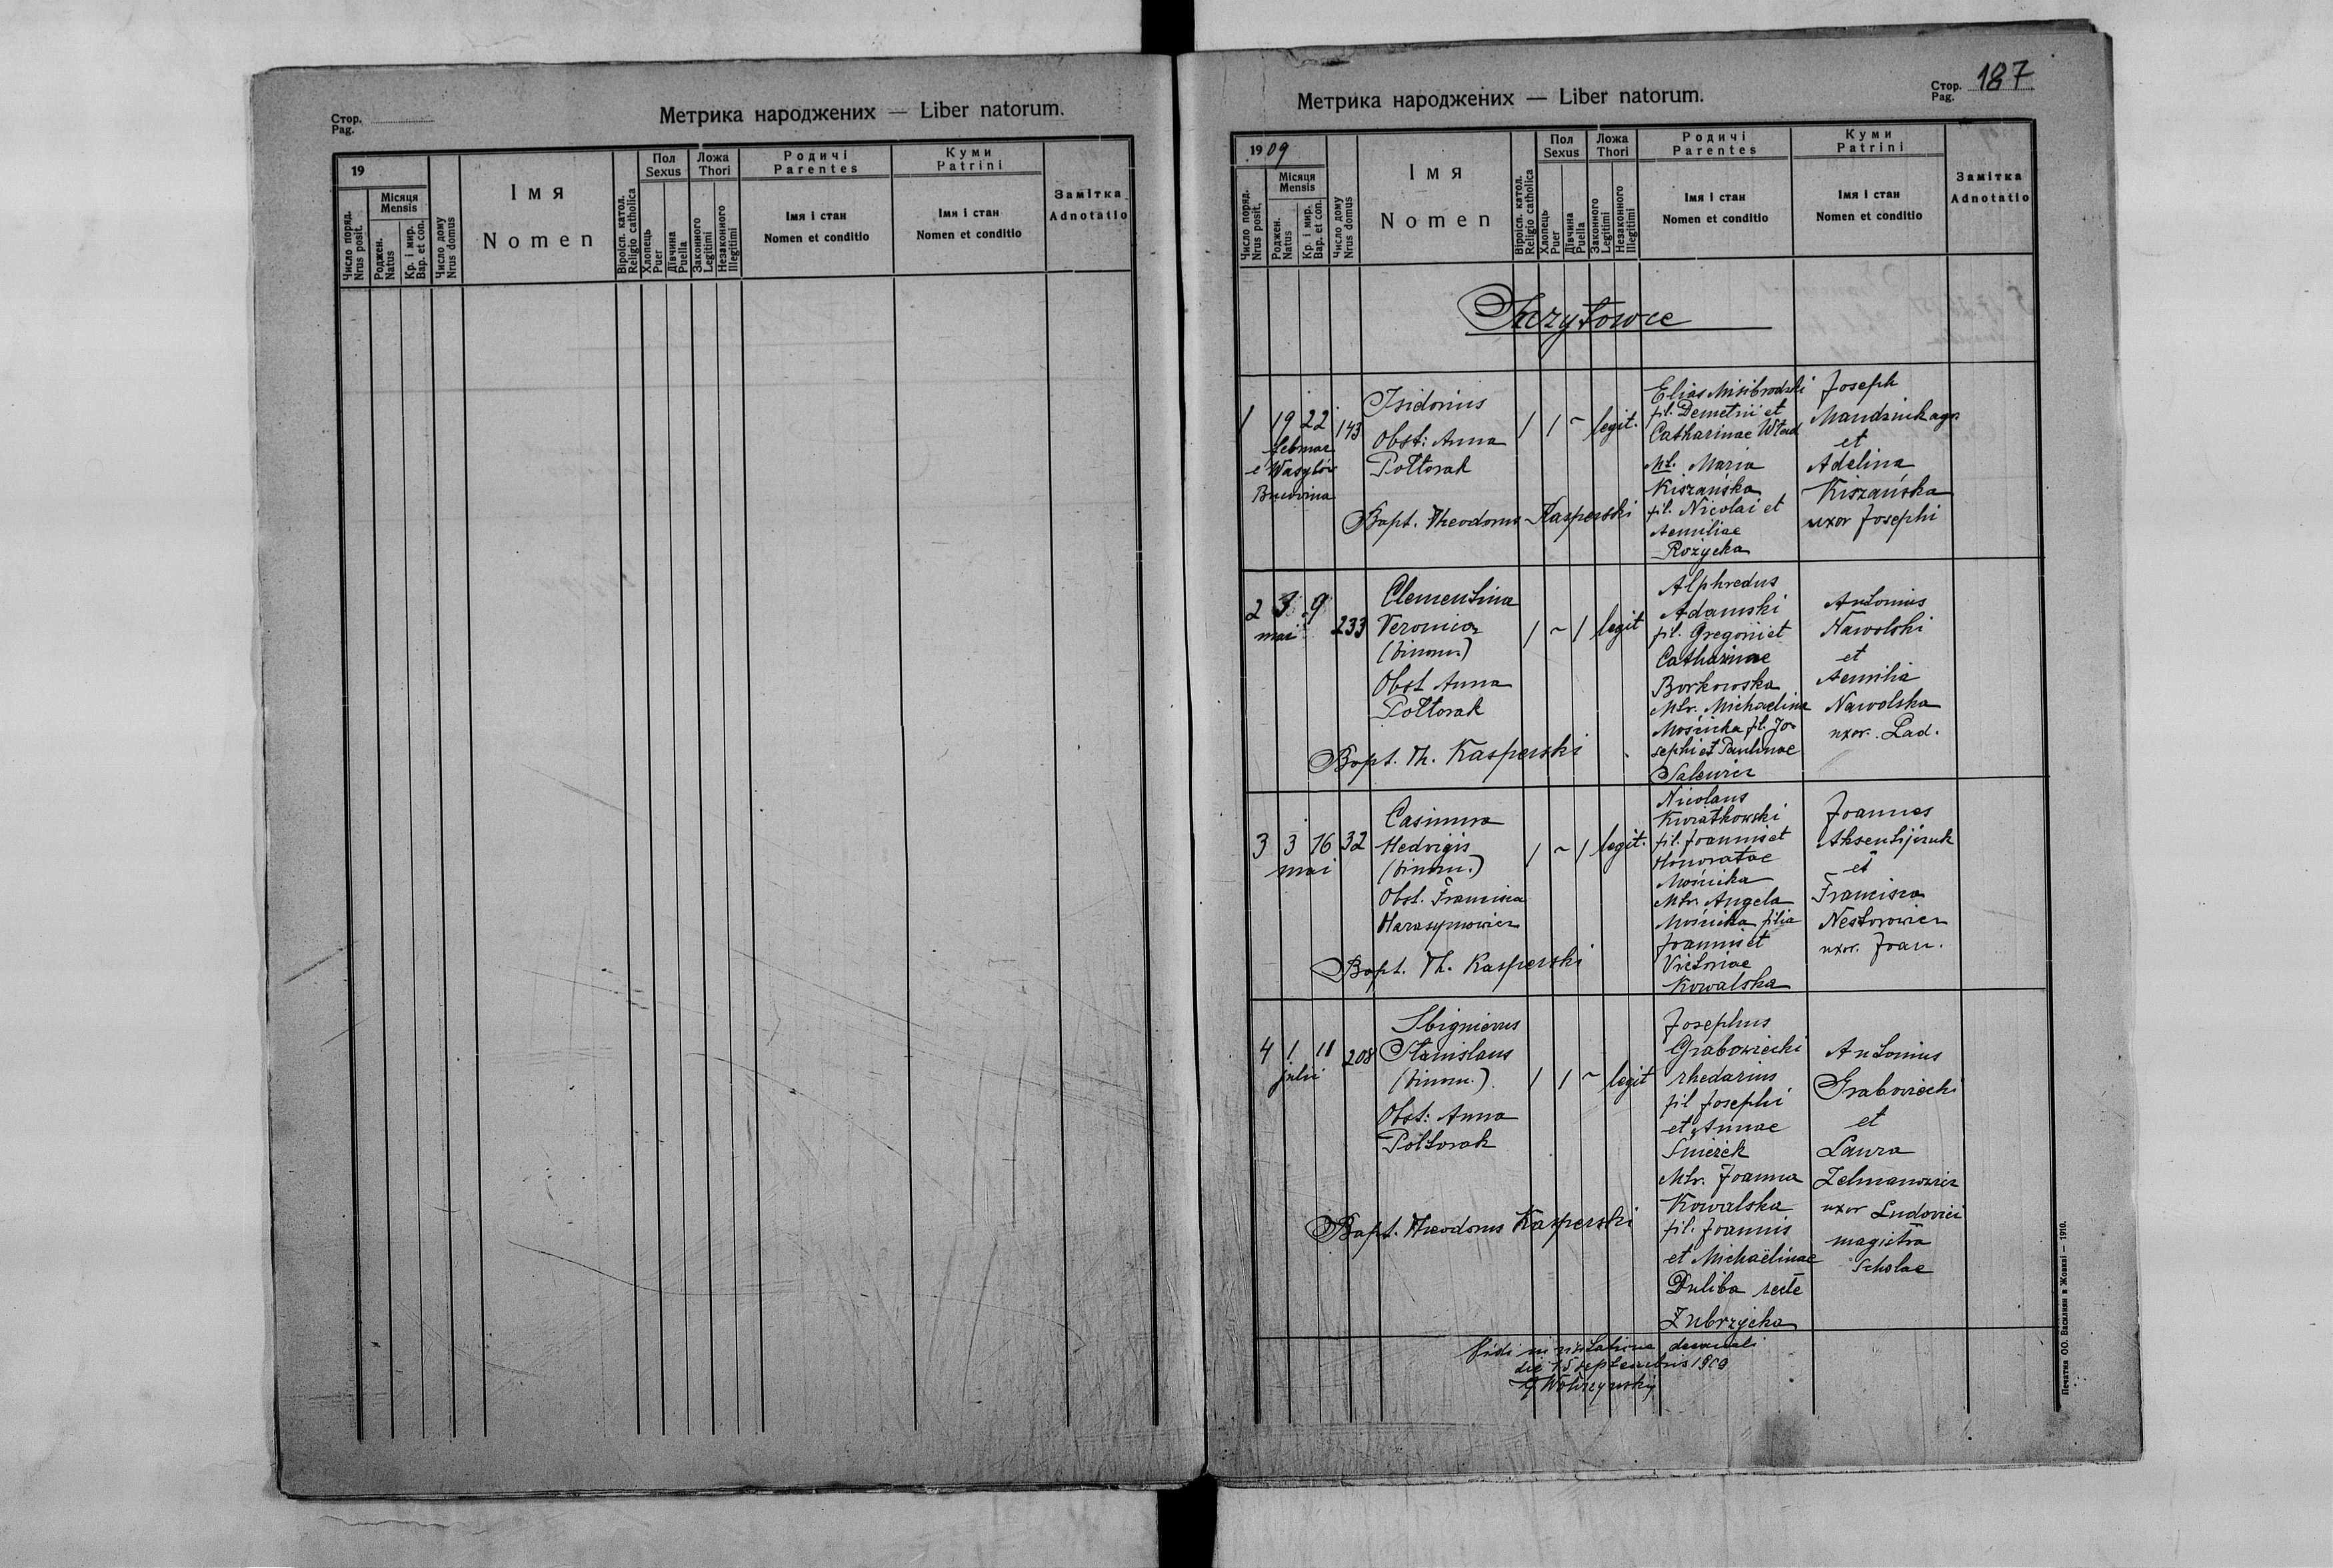 Стор.
Pag.
Метрика народжених — Liber natorum.
19
Місяця
Mensis
Число поряд.
Nrus posit.
Роджен.
Natus
Кр. і мир.
Bap. et con.
Число дому
Nrus domus
Імя
Nomen
Віроісп. катол.
Religio catholica
Пол
Sexus
Хлопець
Puer
Дївчина
Puella
Ложа
Thori
Законного
Legitimi
Незаконного
Illegitimi
Родичі
Parentes
Імя і стан
Nomen et conditio
Куми
Patrini
Імя і стан
Nomen et conditio
Замітка
Adnotatio
Метрика народжених — Liber natorum.
Стор.
Pag.
187
1909
Місяця
Mensis
Число поряд.
Nrus posit.
Роджен.
Natus
Кр. і мир.
Bap. et con.
Число дому
Nrus domus
Імя
Nomen
Віроісп. катол.
Religio catholica
Пол
Sexus
Хлопець
Puer
Дївчина
Puella
Ложа
Thori
Законного
Legitimi
Незаконного
Illegitimi
Родичі
Parentes
Імя і стан
Nomen et conditio
Куми
Patrini
Імя і стан
Nomen et conditio
Замітка
Adnotatio
1 19 22 143
e Wasylów
Isidorius
Obst: Anna
Połtorak
1 1 ~ legit.
Elias
fil. Demetrii et
Catharinae
Maria
Kiszańska
fil. Nicolai et
Aemiliae
Rozycka
Joseph
et
Adelina
Kiszańska
uxor Josephi
Bapt. Theodorus Kasperski
2 3 9 233
mai
Clementina
Veronica
(binom.)
Obst Anna
Połtorak
1 ~ 1 legit
Alphredus
Adamski
fil. Gregorii et
Catharinae
Borkowska
Mtr. Michaelina
Mośnicka fil. Jo-
sephi et Paulinae
Salewicz
Antonius
Nawolski
et
Aemilia
Nawolska
uxor. Lad.
Bapt. Th. Kasperski
3 3 16 32
mai
Casimira
Hedvigis
(binom.)
Obst. Francisca
Harasymowicz
1 ~ 1 legit.
Nicolaus
Kwiatkowski
fil. Joannis et
Honoratae
Mośnicka
Mtr. Angela
Mośnicka filia
Joannis et
Victoriae
Kowalska
Joannes
Aksentijczuk
et
Francisca
Nestorowicz
uxor. Joan.
Bapt. Th. Kasperski
4 1 11 208
julii
Sbignievus
Stanislaus
(binom.)
Obst: Anna
Połtorak
1 1 ~ legit
Josephus
Grabowiecki
rhedarius
fil Josephi
et Annae
Śnieżek
Mtr. Joanna
Kowalska
fil. Joannis
et Michaëlinae
Duliba recte
Zubrzycka
Antonius
Grabowiecki
et
Laura
Zelmanowicz
uxor Ludovici
magistra
Scholae
Bapt. Theodorus Kasperski
Vidi in
die 15 septembris 1909
Печатня ОО. Василиян в Жовкві — 1910.